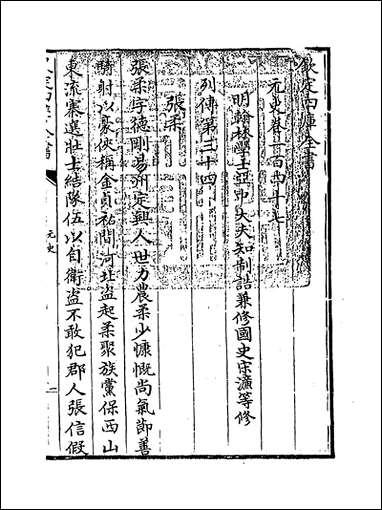 欽定四庫全書
元史卷一百四十七
明翰林學士亞中大夫知制誥兼修國史宋濂等修
列傳第三十四
張柔
張柔字德剛易州定興人世力農柔少慷慨尚氣節善
騎射以豪俠稱金貞祐間河北盜起柔聚族黨保西山
東流寨選壯士結隊伍以自衛盜不敢犯郡人張信假
元史
一